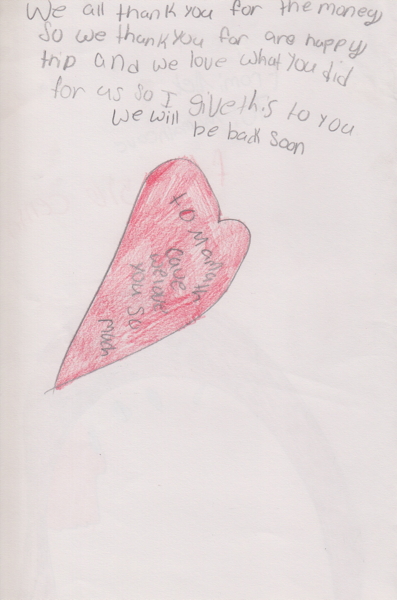 We all thank you for the money
So we thank you for are happy
trip and we love what you did
for us so I give this to you
we will
be back soon
to Mamath
Cave
we love
you so
Mach